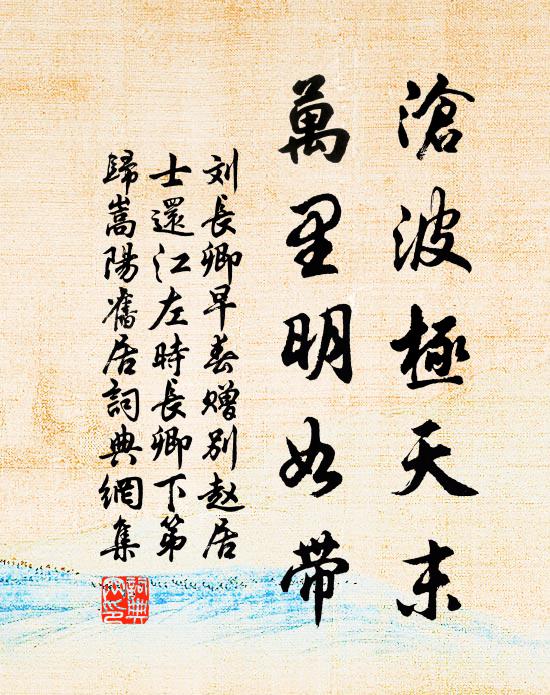 滄波極天末
萬里明如帶
刘長卿早春贈別赵居
士還江左時長卿下第
歸嵩陽舊居詞典網集